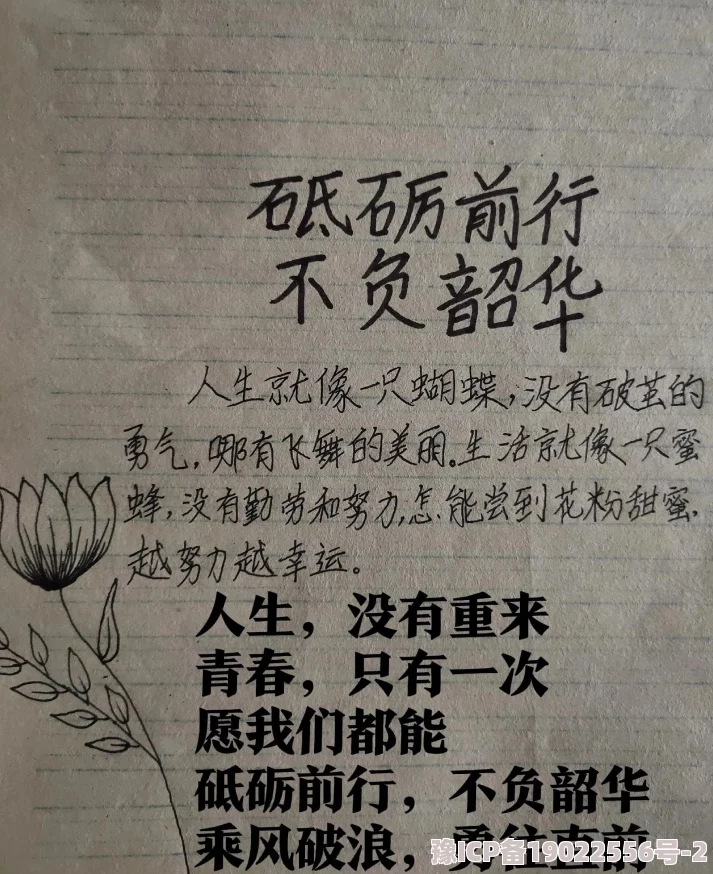 砥砺前行
不负韶华
人生就像一只蝴蝶,没有破茧的
勇气,哪有飞舞的美丽。生活就像一只蜜
蜂,没有勤劳和努力,怎能尝到花粉甜蜜,
越努力越幸运。
人生，没有重来
青春，只有一次
愿我们都能
砥砺前行，不负韶华
乘风破浪，勇往直前
豫ICP备19022556号-2